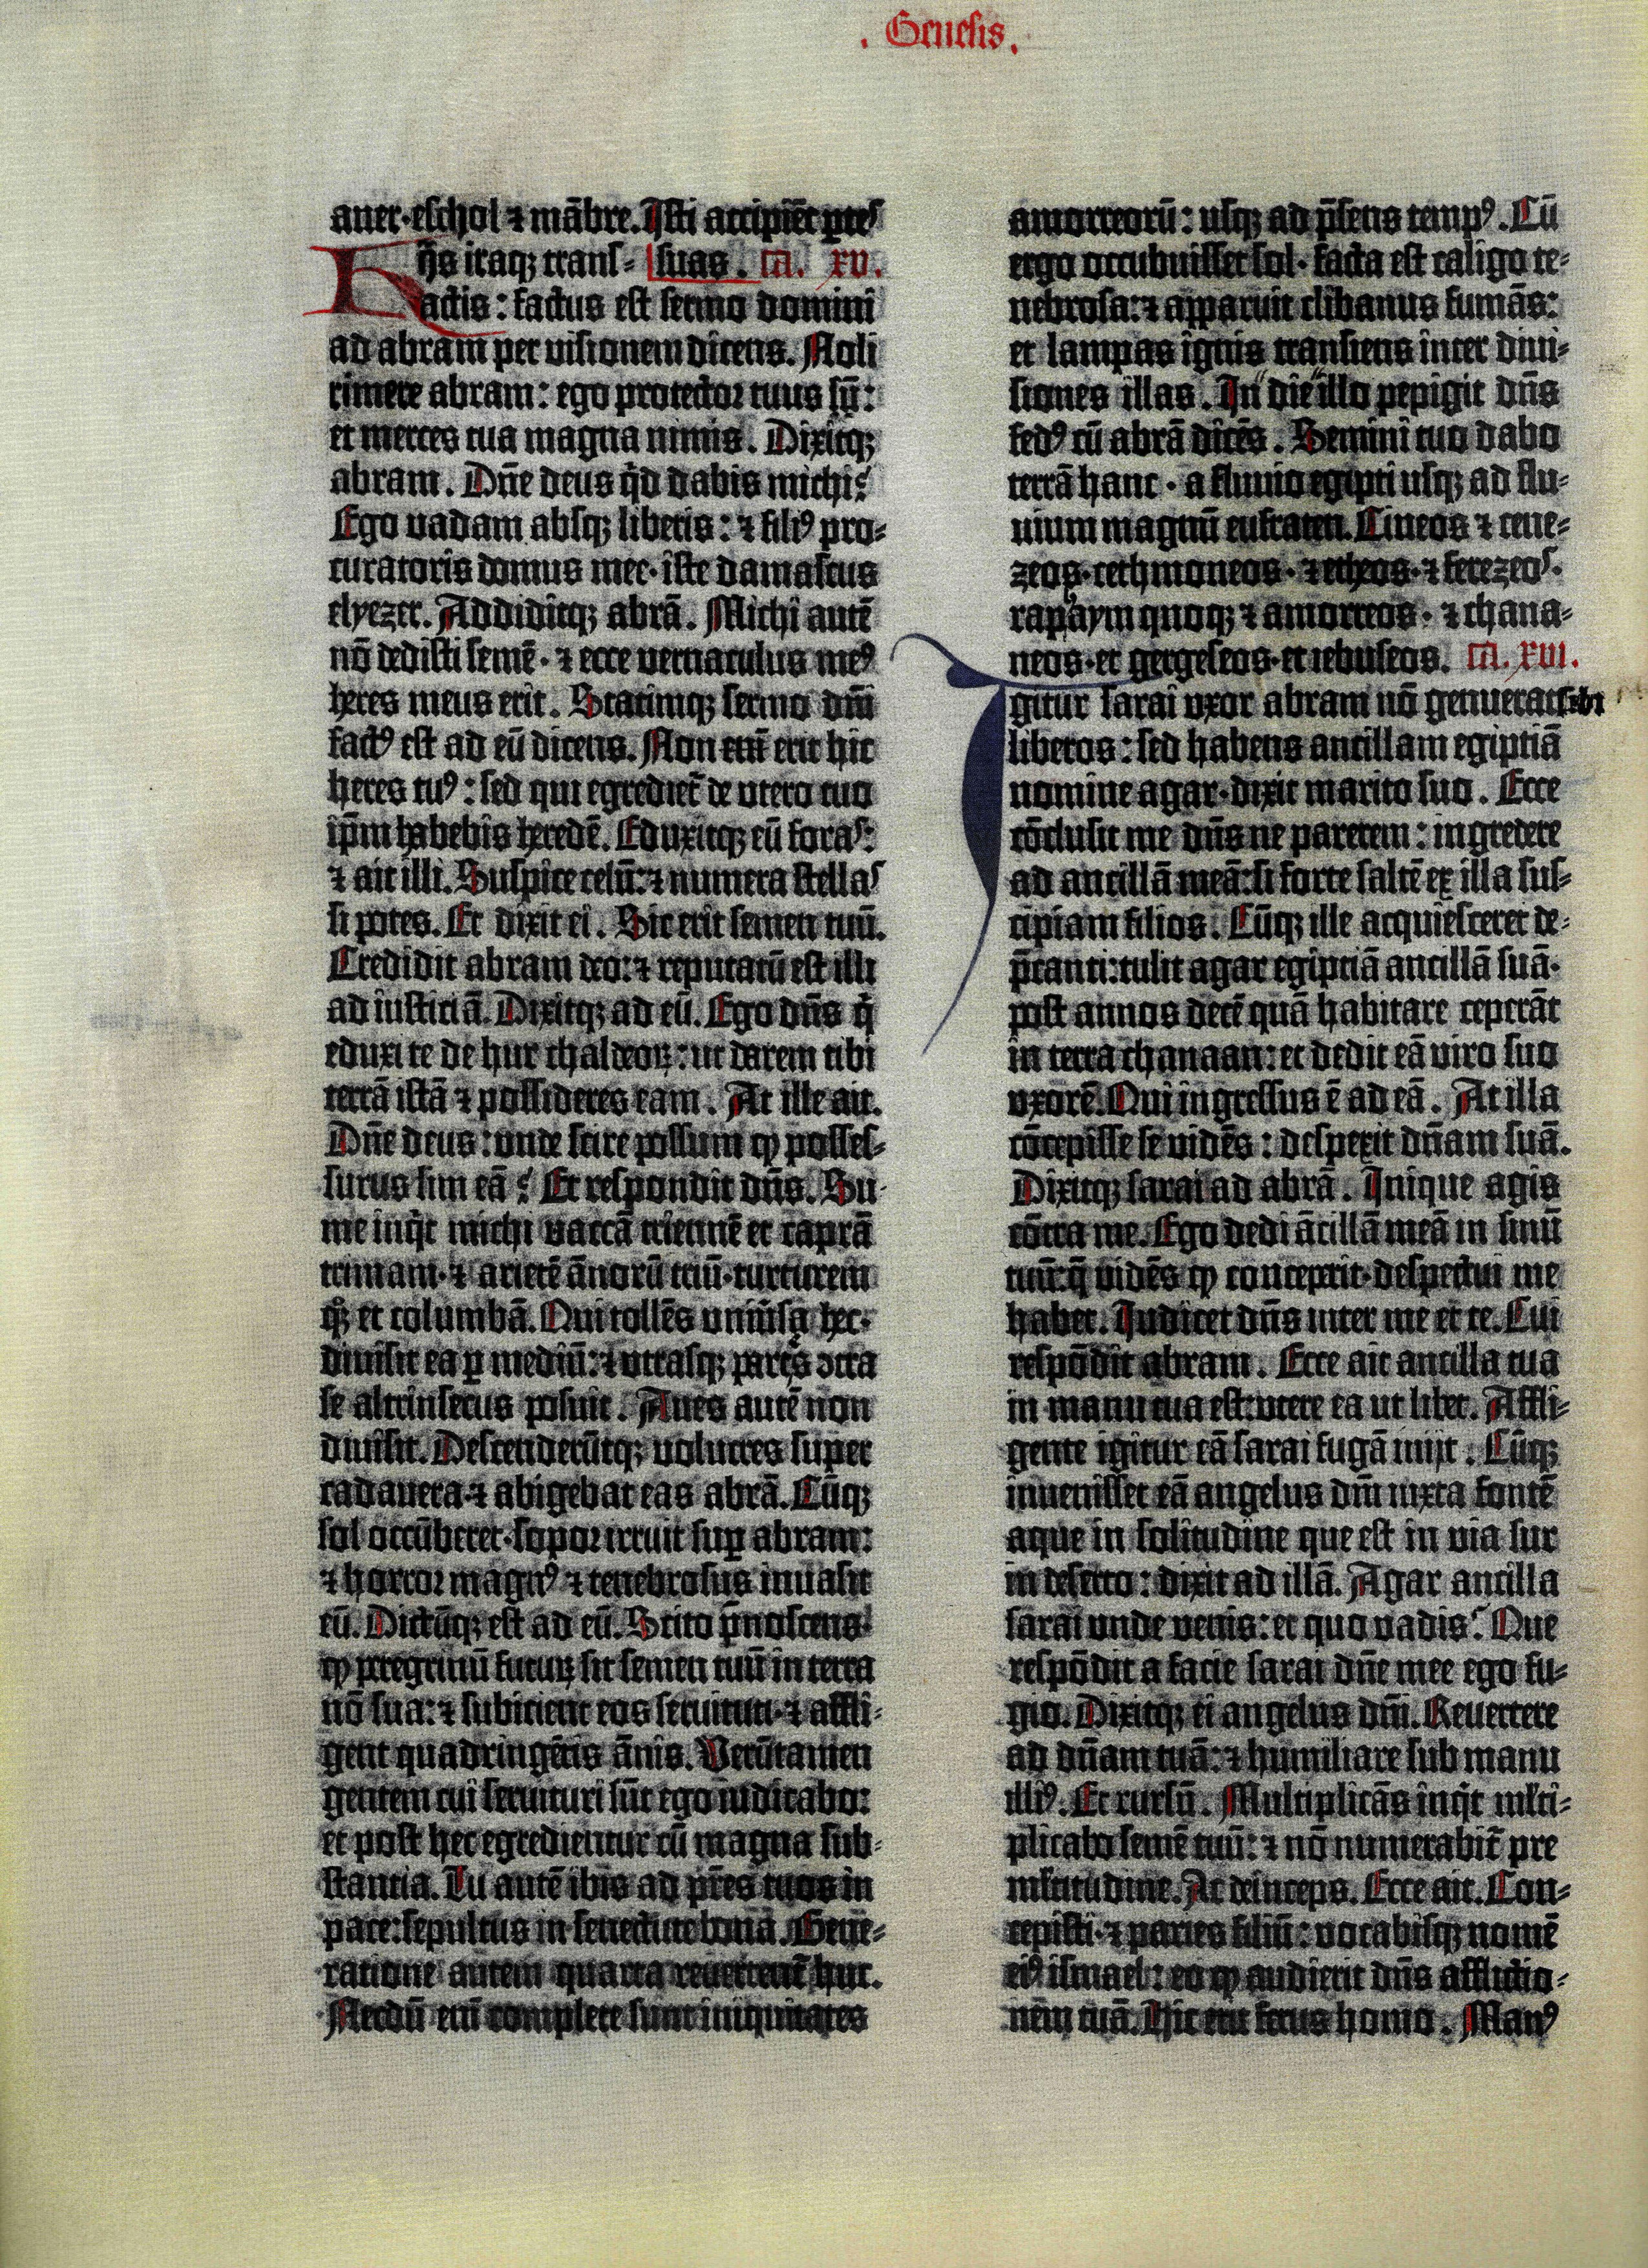 . Genesis .
aner·eschol ⁊ mābre. Isti accipiēt ꝑtes
Hijs itaqꝫ trans- suas. ca. xv.
actis: factus est sermo domini
ad abram per visionem dicens. Noli
timere abram: ego protector tuus sū:
et merces tua magna nimis. Dixitqꝫ
abram. Dn̄e deus qͥd dabis michi?
Ego vadam absqꝫ liberis: ⁊ filiꝰ pro-
curatoris domus mee·iste damascus
elyezer. Addiditqꝫ abrā. Michi autē
nō dedisti semē· ⁊ ecce vernaculus meꝰ
heres meus erit. Statimqꝫ sermo dn̄i
factꝰ est ad eū dicens. Non em̄ erit hic
heres tuꝰ: sed qui egrediet̄ de utero tuo
ip̄m habebis heredē. Eduxitqꝫ eū foras:
⁊ ait illi. Suspice celū: ⁊ numera stellas
si potes. Et dixit ei. Sic erit semen tuū.
Credidit abram deo: ⁊ reputatū est illi
ad iusticiā. Dixitqꝫ ad eū. Ego dn̄s qͥ
eduxi te de hur chaldeoꝝ: ut darem tibi
terrā istā ⁊ possideres eam. At ille ait.
Dn̄e deus: unde scire possum ꝙ posses-
surus sim eā? Et respondit dn̄s. Su-
me inqͥt michi vaccā triennē et caprā
trimam· ⁊ arietē ānorū triū·turturem
qꝫ et columbā. Qui tollēs univ̄sa hec·
divisit ea ꝑ mediū: ⁊ utrasqꝫ partes ↄtra
se altrinsecus posuit. Aves autē non
divisit. Descenderūtqꝫ volucres super
cadavera·⁊ abigebat eas abrā. Cūqꝫ
sol occūberet·sopor irruit suꝑ abram:
⁊ horror magnꝰ ⁊ tenebrosus invasit
eū. Dictūqꝫ est ad eū. Scito p̄noscens·
ꝙ peregrinū futuꝝ sit semen tuū in terra
nō sua: ⁊ subicient eos servituti·⁊ affli-
gent quadringētis ānis. Verūtamen
gentem cui servituri sūt ego iudicabo:
et post hec egredientur cū magna sub-
stantia. Tu autē ibis ad pr̄es tuos in
pace: sepultus in senectute bona. Gene-
ratione autem quarta revertent̄ huc.
Necdū em̄ complete sunt iniquitates
amorreorū: usqꝫ ad p̄sens tempꝰ. Cū
ergo occubuisset sol· facta est caligo te-
nebrosa: ⁊ apparuit clibanus fumās:
et lampas ignis transiens inter divi-
siones illas. In die illo pepigit dn̄s
fedꝰ cū abrā dicēs. Semini tuo dabo
terrā hanc · a fluvio egipti usqꝫ ad flu-
vium magnū eufraten. Cineos ⁊ cene-
zeos·cethmoneos· ⁊ etheos·⁊ ferezeos·
raphaym quoqꝫ ⁊ amorreos· ⁊ chana-
neos·et gergeseos·et iebuseos. ca. xvi.
Igitur sarai uxor abram nō genuerat sibi
liberos: sed habens ancillam egiptiā
nomine agar·dixit marito suo. Ecce
cōclusit me dn̄s ne parerem: ingredere
ad ancillā meā: si forte saltē ex illa sus-
cipiam filios. Cūqꝫ ille acquiesceret de-
p̄canti: tulit agar egiptiā ancillā suā·
post annos decē quā habitare ceperāt
in terra chanaan: et dedit eā viro suo
uxorē. Qui ingressus ē ad eā. At illa
cōcepisse se vidēs: despexit dn̄am suā.
Dixitqꝫ sarai ad abrā. Inique agis
cōtra me. Ego dedi ācillā meā in sinū
tuū: q̄ vidēs ꝙ conceperit·despectui me
habet. Iudicet dn̄s inter me et te. Cui
respōdit abram. Ecce ait ancilla tua
in manu tua est: utere ea ut libet. Affli-
gente igitur eā sarai fugā inijt. Cūqꝫ
invenisset eā angelus dn̄i iuxta fontē
aque in solitudine que est in via sur
in deserto: dixit ad illā. Agar ancilla
sarai unde venis: et quo vadis? Que
respōdit a facie sarai dn̄e mee ego fu-
gio. Dixitqꝫ ei angelus dn̄i. Revertere
ad dn̄am tuā: ⁊ humiliare sub manu
illiꝰ. Et rursū. Multiplicās inqͥt ml̓ti-
plicabo semē tuū: ⁊ nō numerabit̄ pre
ml̓titudine. Ac deinceps. Ecce ait. Con-
cepisti·⁊ paries filiū: vocabisqꝫ nomē
eiꝰ ismael: eo ꝙ audierit dn̄s afflictio-
nem tuā. Hic erit ferus homo. Manꝰ